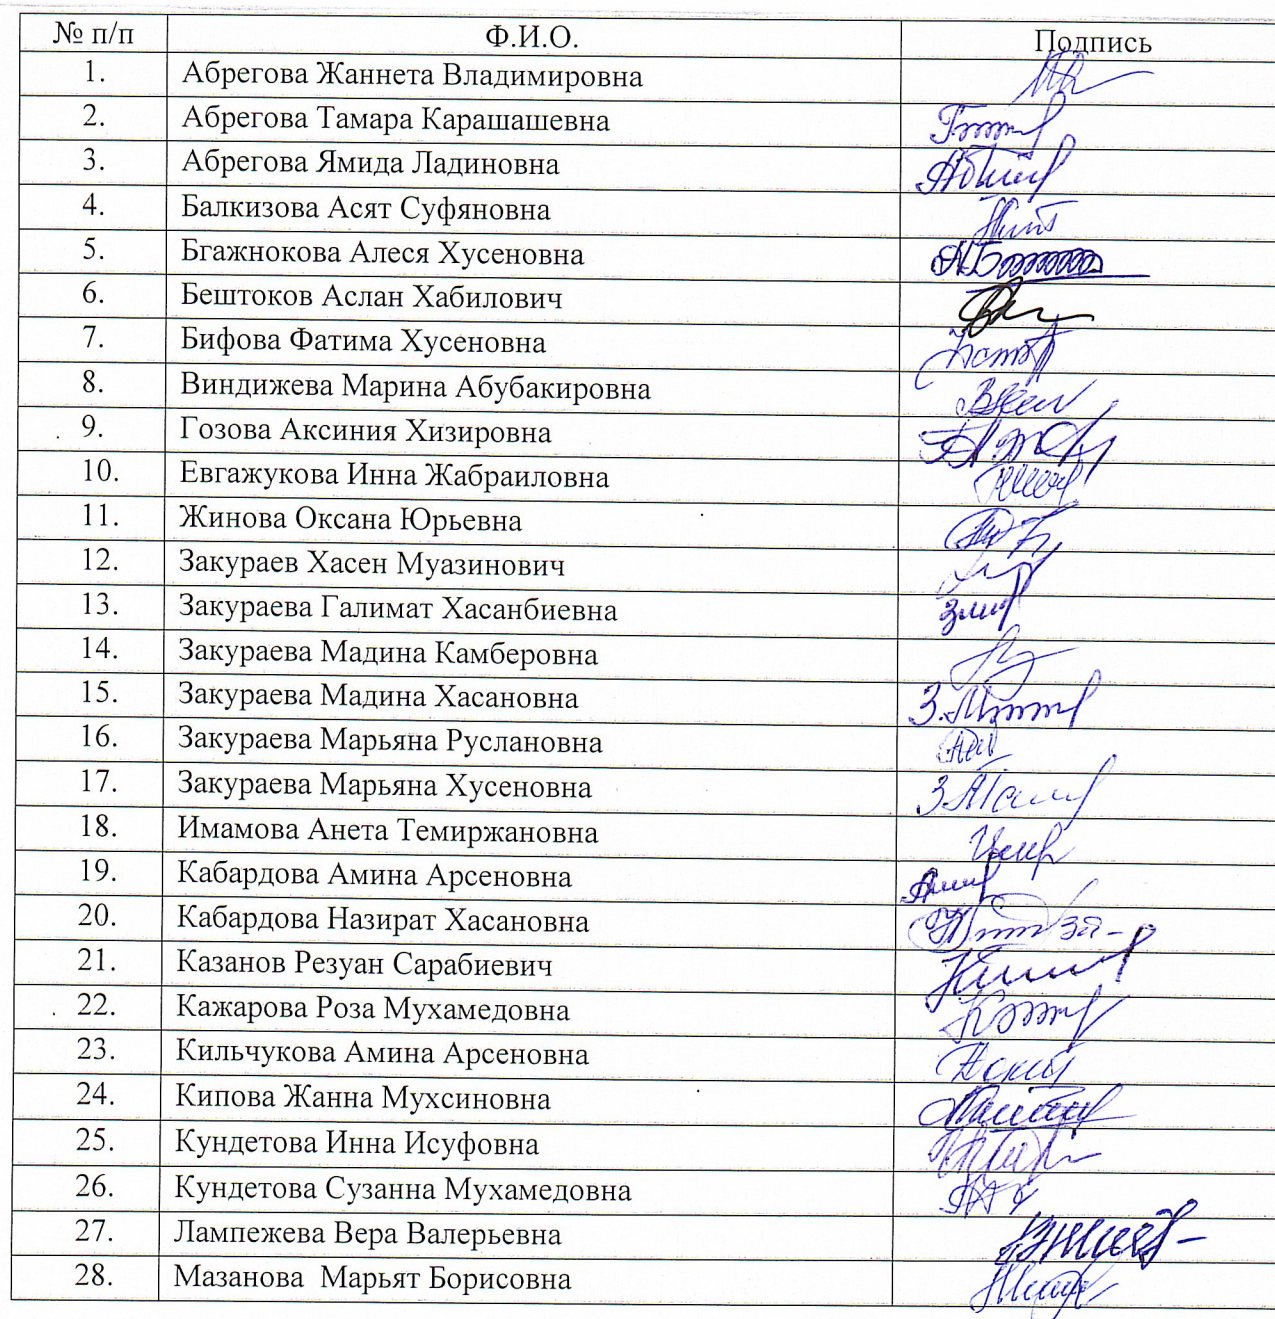 № п/п Ф.И.О. Подпись
1. Абрегова Жаннета Владимировна
2. Абрегова Тамара Карашашевна
3. Абрегова Ямида Ладиновна
4. Балкизова Асят Суфяновна
5. Бгажнокова Алеся Хусеновна
6. Бештоков Аслан Хабилович
7. Бифова Фатима Хусеновна
8. Виндижева Марина Абубакировна
9. Гозова Аксиния Хизировна
10. Евгажукова Инна Жабраиловна
11. Жинова Оксана Юрьевна
12. Закураев Хасен Муазинович
13. Закураева Галимат Хасанбиевна
14. Закураева Мадина Камберовна
15. Закураева Мадина Хасановна
16. Закураева Марьяна Руслановна
17. Закураева Марьяна Хусеновна
18. Имамова Анета Темиржановна
19. Кабардова Амина Арсеновна
20. Кабардова Назират Хасановна
21. Казанов Резуан Сарабиевич
22. Кажарова Роза Мухамедовна
23. Кильчукова Амина Арсеновна
24. Кипова Жанна Мухсиновна
25. Кундетова Инна Исуфовна
26. Кундетова Сузанна Мухамедовна
27. Лампежева Вера Валерьевна
28. Мазанова Марьят Борисовна